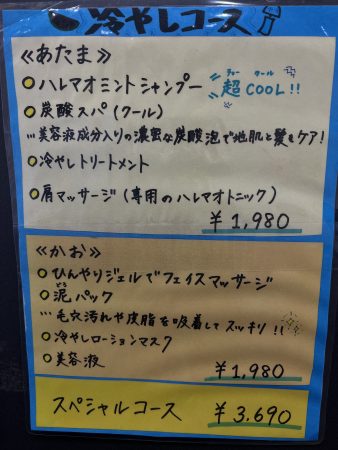 冷やしコース
≪あたま≫
ハレマオミントシャンプー
チョー クール
超COOL!!
炭酸スパ(クール)
…美容液成分入りの濃蜜な炭酸泡で地肌と髪をケア!
冷やしトリートメント
肩マッサージ(専用のハレマオトニック)
¥1,980
≪かお≫
ひんやりジェルでフェイスマッサージ
どろ
泥パック
…毛穴汚れや皮脂を吸着してスッキリ!!
冷やしローションマスク
美容液
¥1,980
スペシャルコース ¥3,690